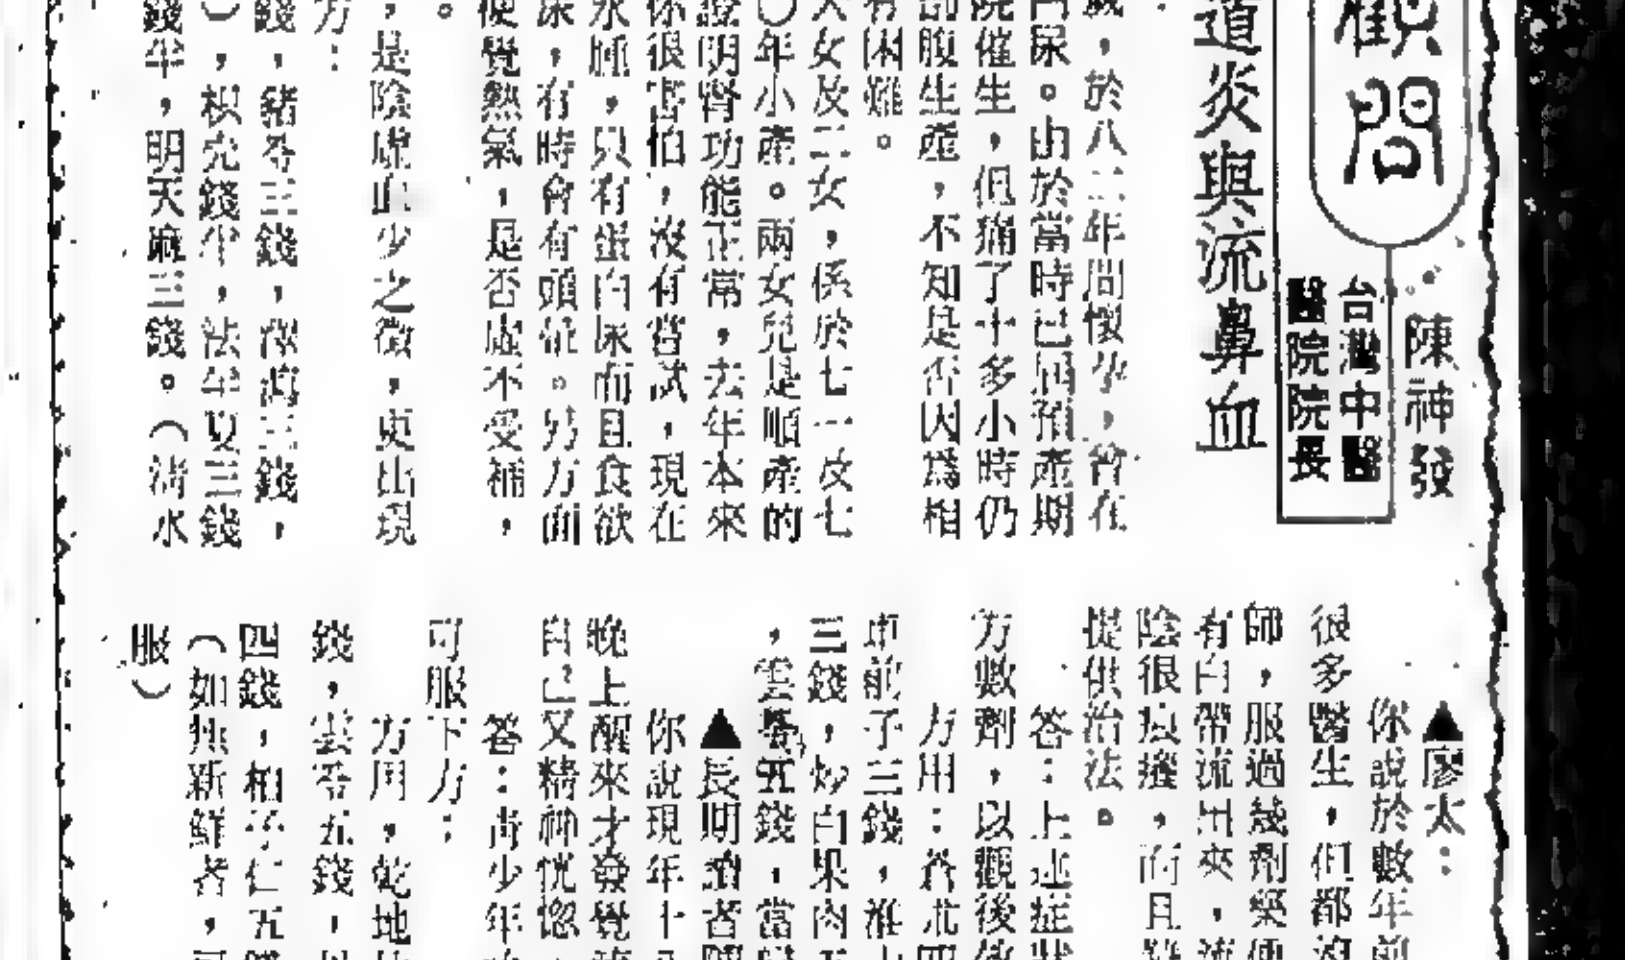 顧問
陳神發
台灣中醫
醫院院長
道炎與流鼻血
歲，於八二年間懷孕，曾在
白尿。由於當時已屆預產期
院催生，但痛了十多小時仍
剖腹生產，不知是否因為相
有困難。
大女及二女，係於七一及七
〇年小產。兩女兒是順產的
證明腎功能正常，去年本來
你很害怕，沒有嘗試，現在
水腫，只有蛋白尿而且食欲
尿，有時會有頭暈。另方面
便覺熱氣，是否虛不受補，
。
，是陰虛血少之徵，更出現
方：
錢，豬苓三錢，澤瀉三錢，
），枳壳錢半，法半夏三錢
錢半，明天麻三錢。（清水
▲廖太：
你說於數年前
很多醫生，但都
師，服過幾劑藥便
有白帶流出來，
陰很痕癢，而且
提供治法。
答：上述症狀
方數劑，以觀後
方用：蒼朮四
車前子三錢，淮
三錢，炒白果肉五
，雲苓五錢，當
▲長期讀者
你說現年十
晚上醒來才發覺
自己又精神恍惚
答：青少年
可服下方：
方用，乾地
錢，雲苓五錢，
四錢，柏子仁五錢
（如無新鮮者，
服）